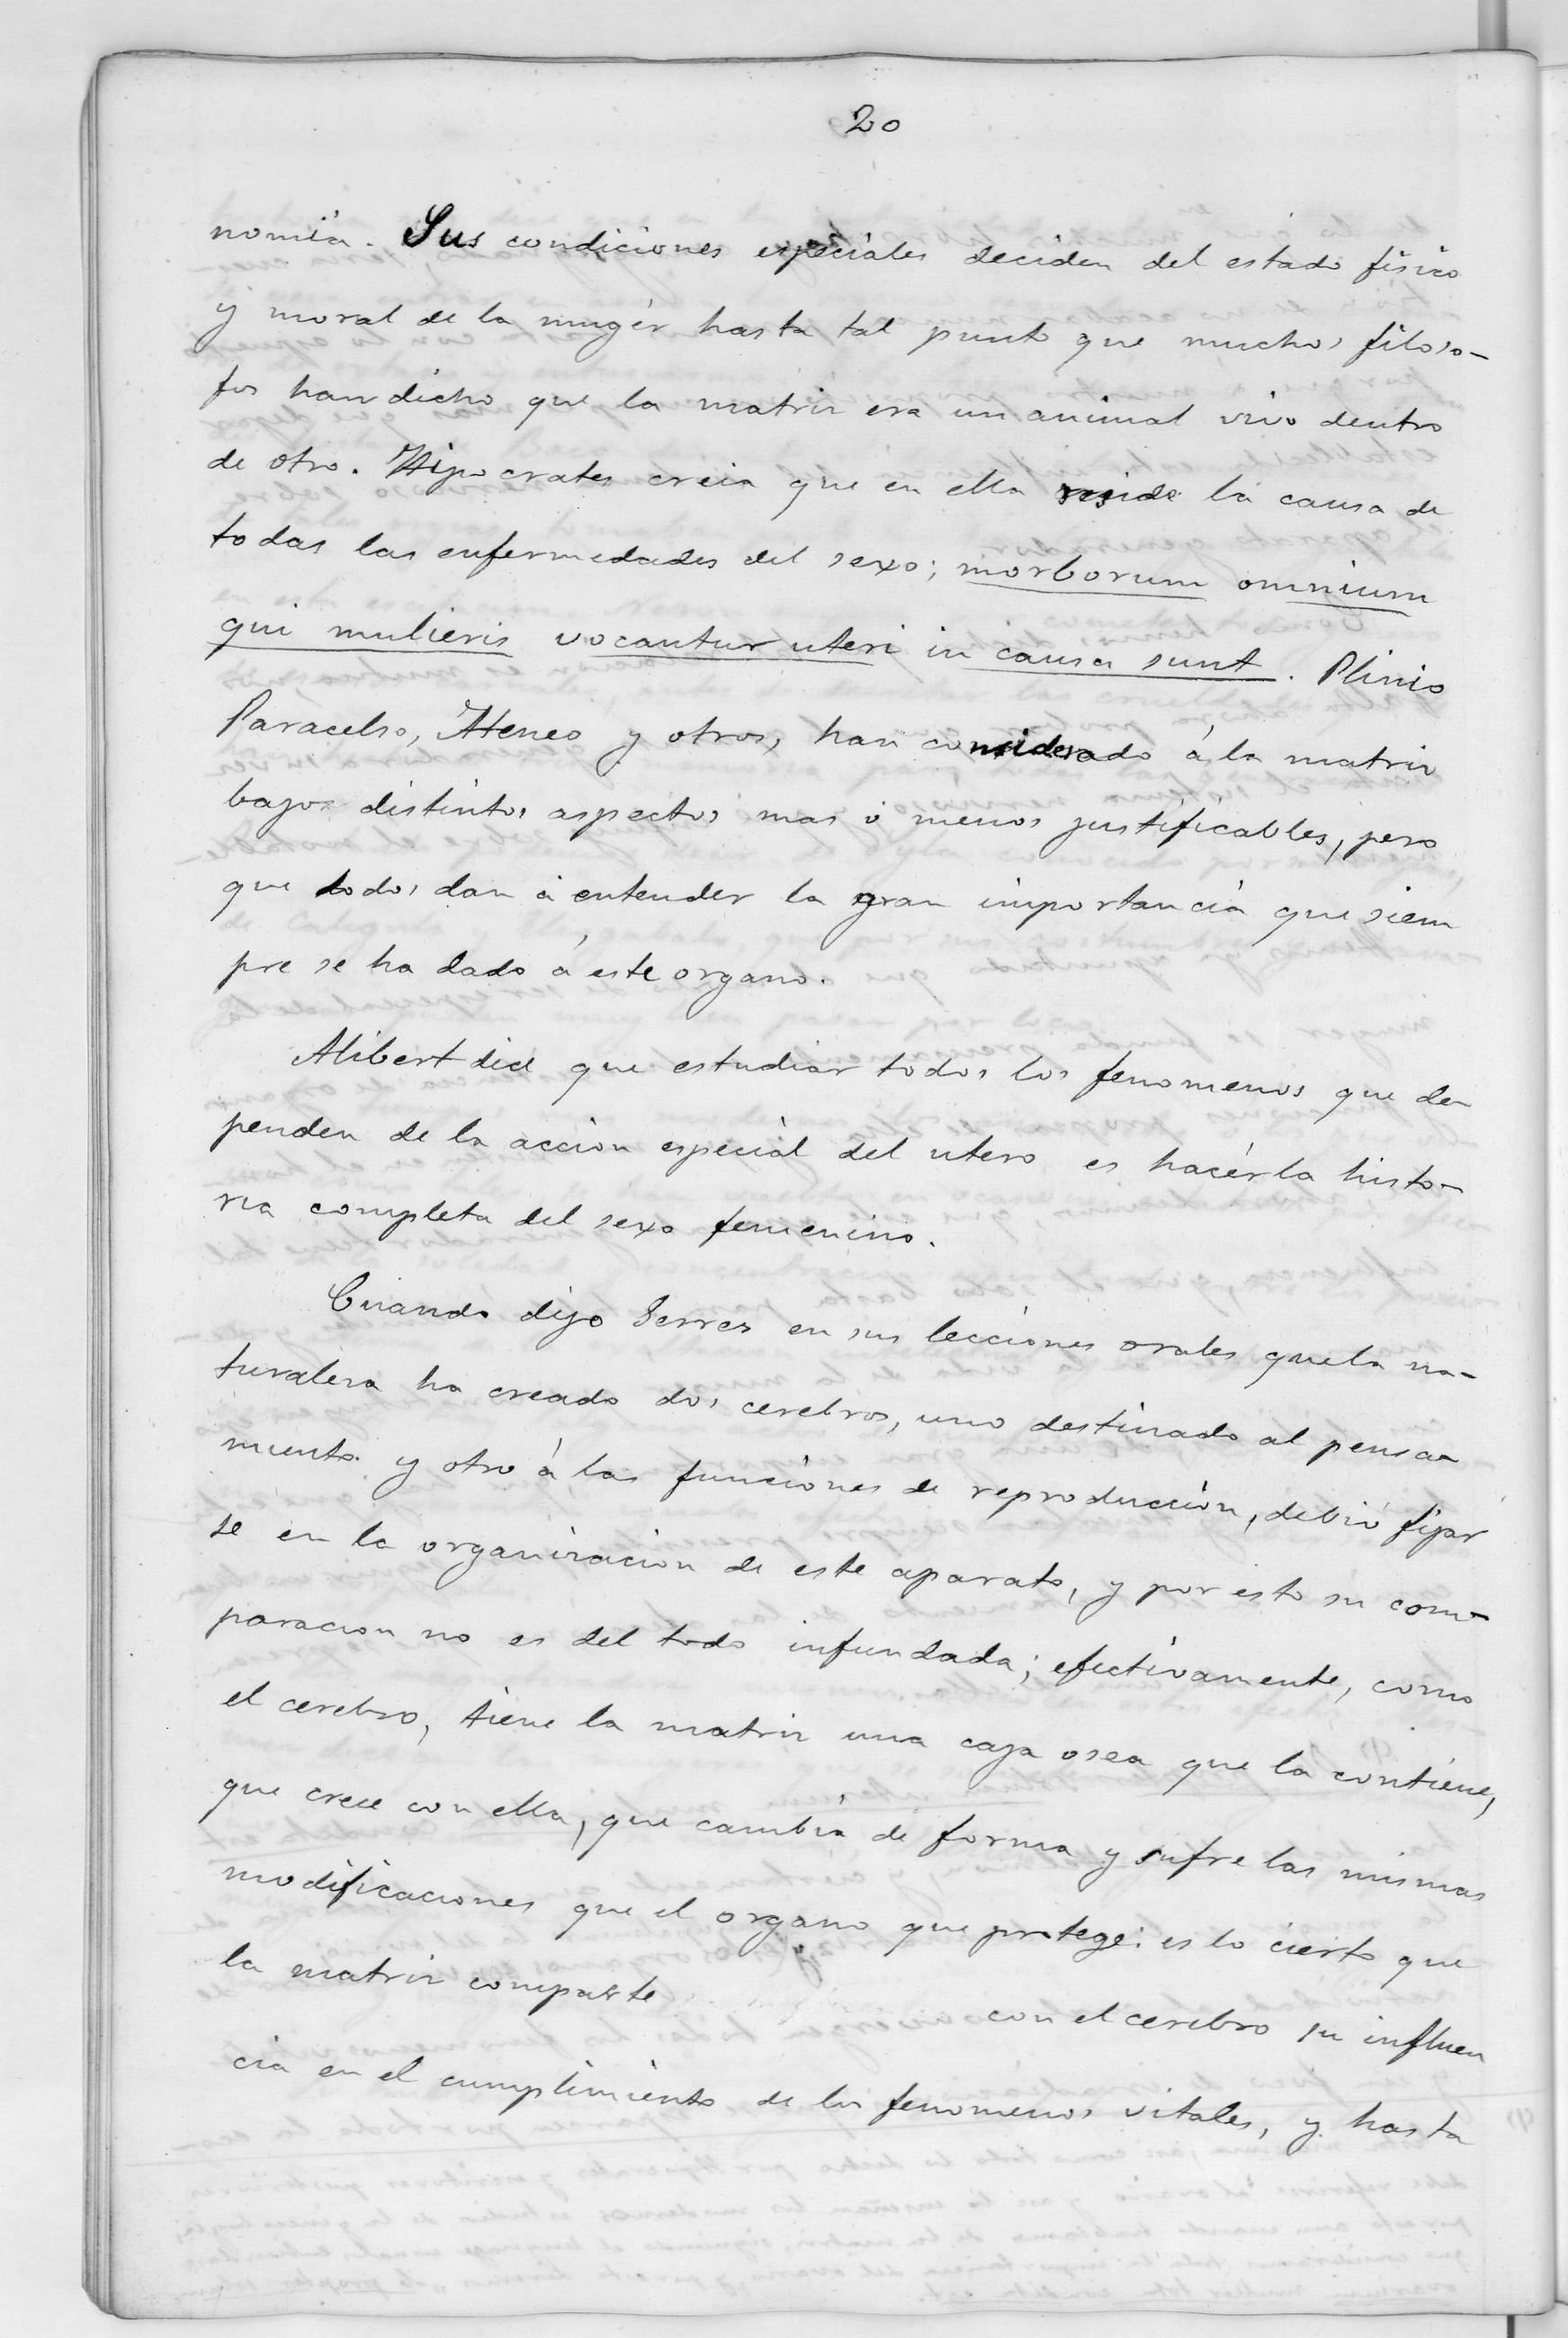 20
nomia. Sus condiciones especiales deciden del estado fisico
y moral de la muger hasta tal punto que muchos filoso-
fos han dicho que la matriz era un animal vivo dentro
de otro. Hipocrates creia que en ella reside la causa de
todas las enfermedades del sexo; morborum omnium
qui mulieris vocantur uteri in causa sunt. Plinio
Paracelso, Ateneo y otros, han considerado á la matriz
bajo distintos aspectos mas ó menos justificables, pero
que todos dan á entender la gran importancia que siem
pre se ha dado á este organo.
Alibert dice que estudiar todos los fenomenos que de
penden de la accion especial del utero es hacer la histo-
ria completa del sexo femenino.
Cuando dijo Serres en sus lecciones orales que la na-
turaleza ha creado dos cerebros, uno destinado al pensa-
miento y otro á las funciones de reproduccion, debió fijar
se en la organizacion de este aparato, y por esto su com-
paracion no es del todo infundada; efectivamente, como
el cerebro, tiene la matriz una caja osea que la contiene,
que crece con ella, que cambia de forma y sufre las mismas
modificaciones que el organo que protege: es lo cierto que
la matriz comparte con el cerebro su influen
cia en el cumplimiento de los fenomenos vitales, y hasta